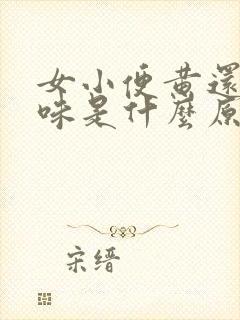 女小便黄還
味是什麼原
宋缙